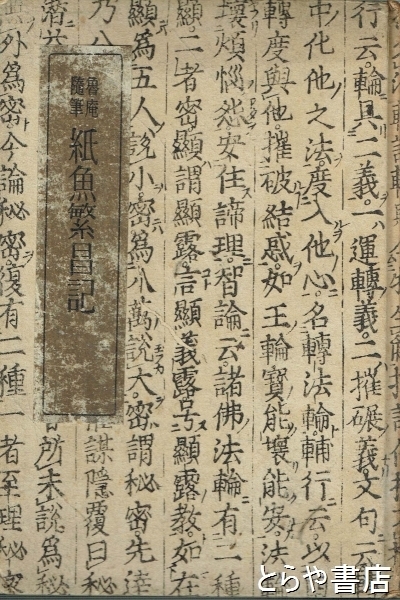 魯庵
随筆
紙魚繁昌記
行云。輪具二義。一運轉義。二摧碾義。文句云
中化他之法。度入他心。名轉法輪。輔行云。以
轉度與他。摧破結惑。如王輪寶能壞能安。法
壞煩惱怨。安住諦理。智論云。諸佛法輪有二種
顯。二者密。顯謂顯露言顯義露。号顯露教。如在
顯爲五人說小。密爲八萬說大。密謂秘密。先達
乃八
謀隱覆曰秘
所未說爲秘
外爲密。今論秘密復有二種。一者至理秘密
とらや書店